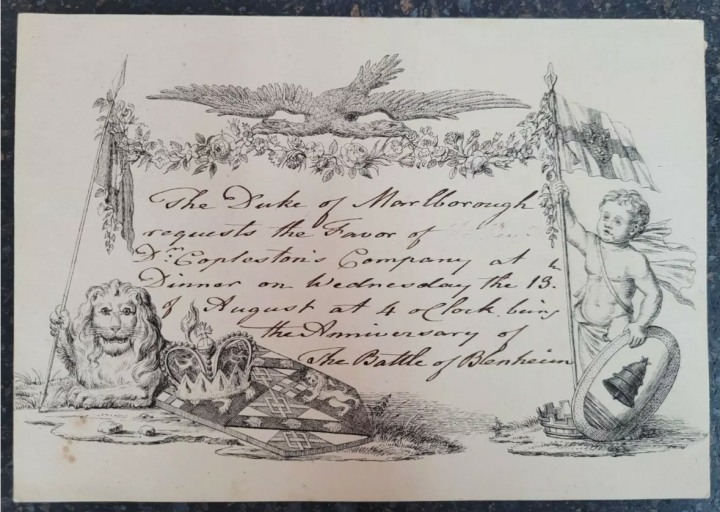 The Duke of Marlborough
requests the Favor of
Dr. Copleston's Company at
Dinner on Wednesday the 13.
of August at 4 oClock being
the Anniversary of
The Battle of Blenheim